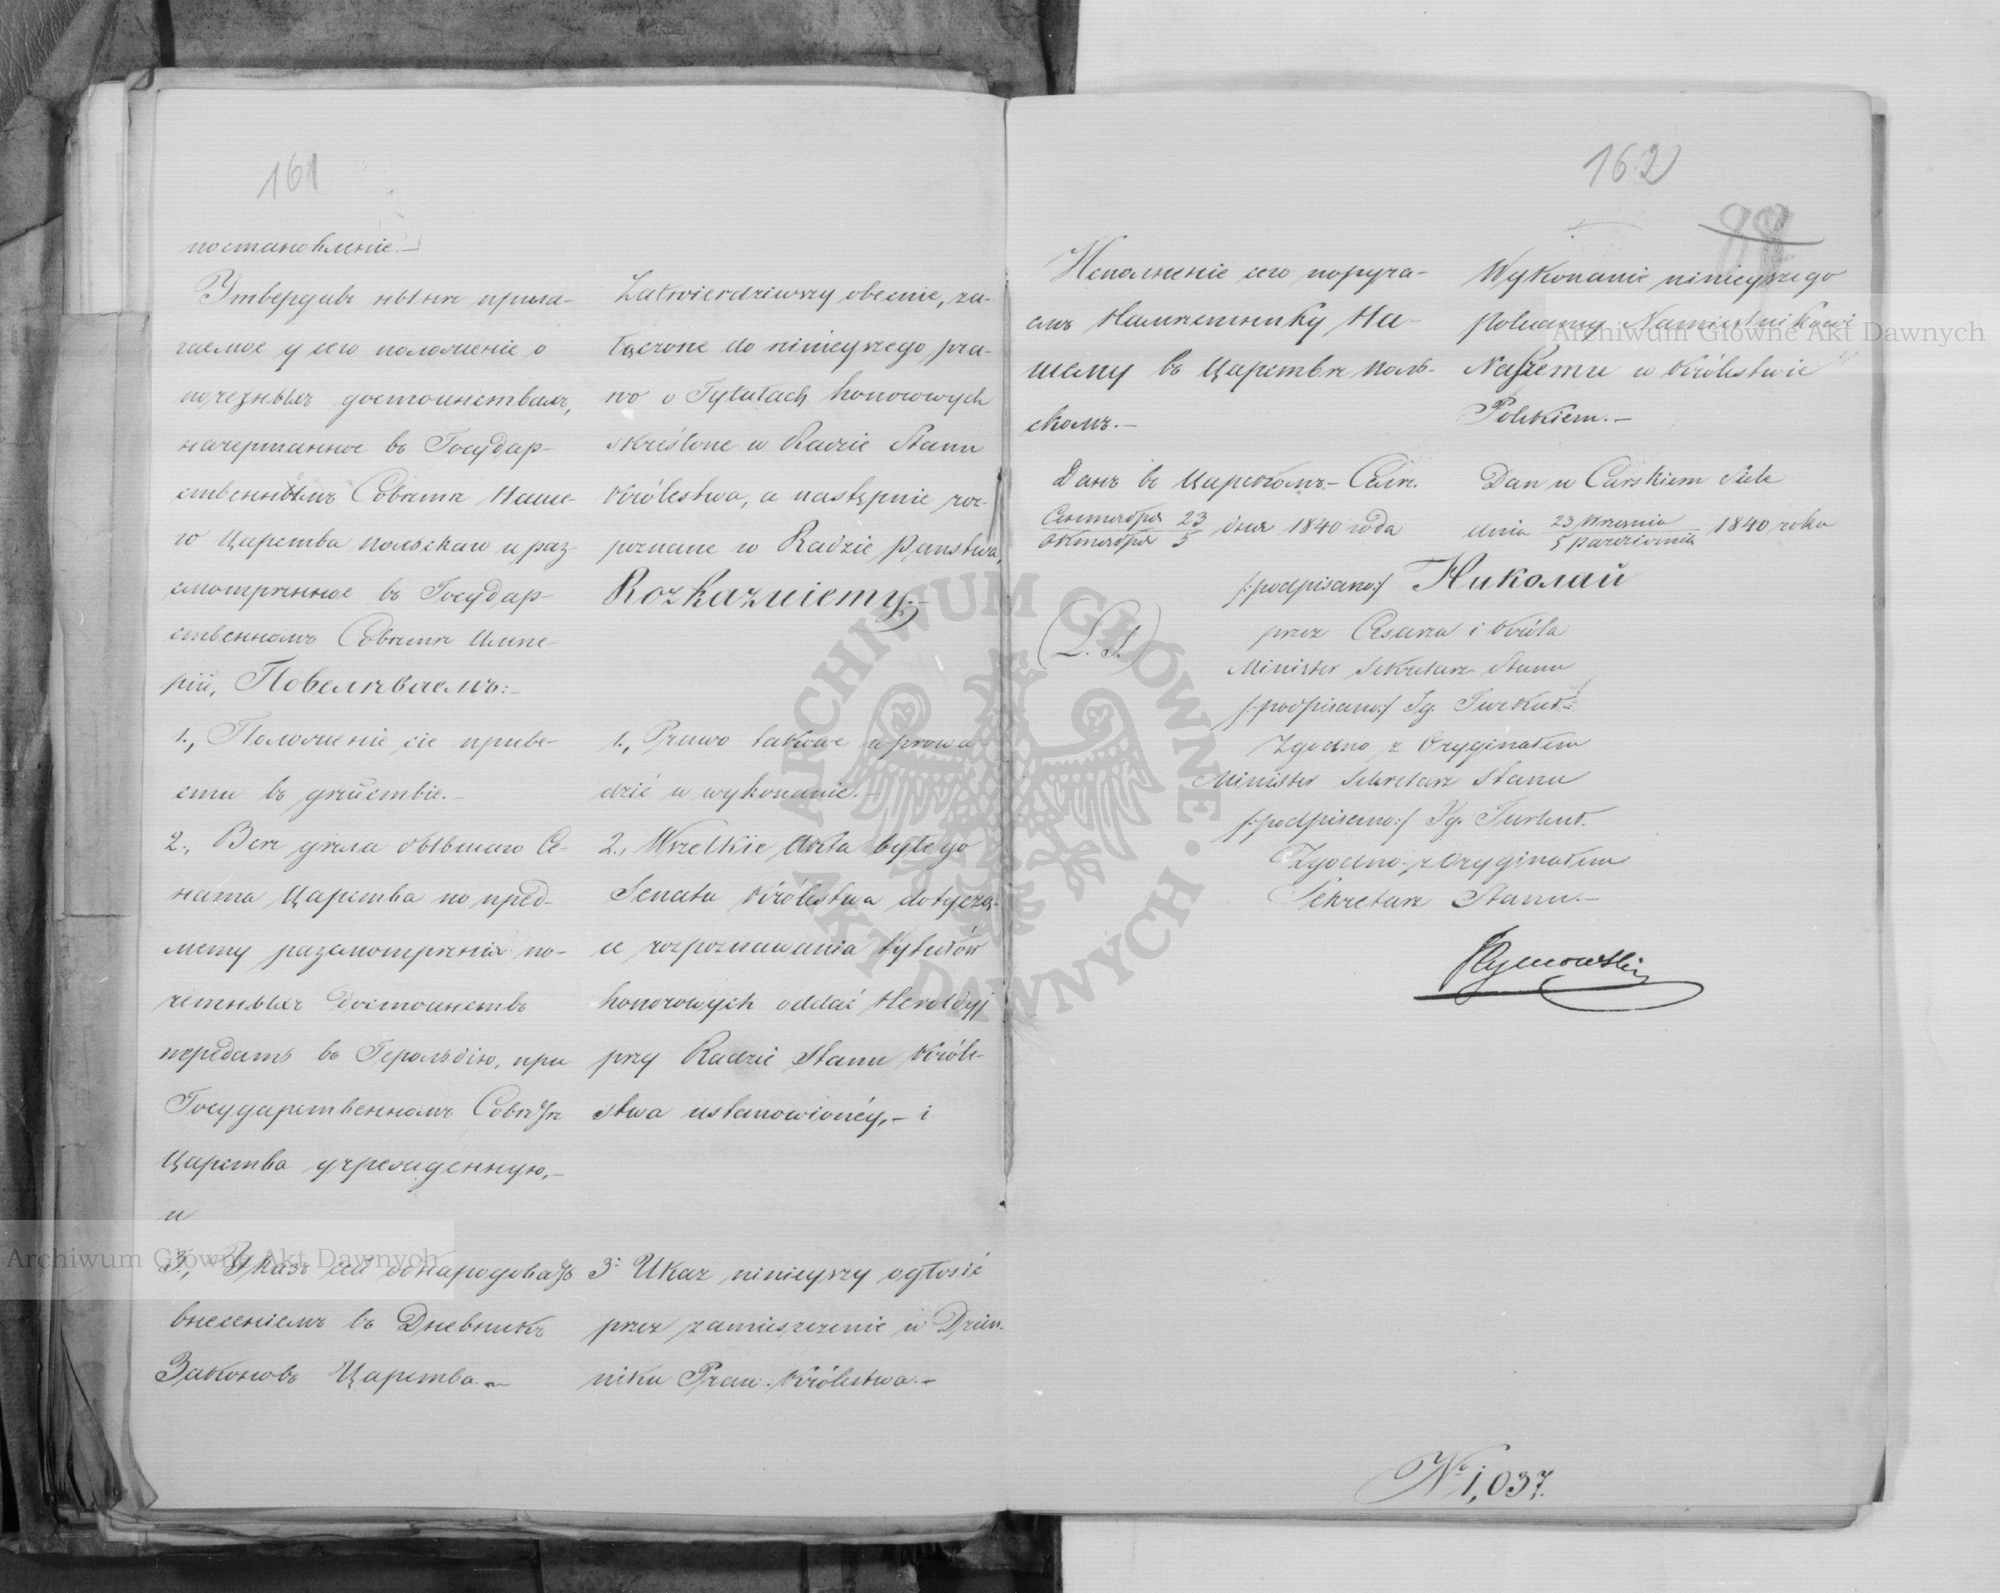 161
постановленіе.—
Утвердивъ нынѣ прила-
гаемое у сего положеніе о
почетныхъ достоинствахъ,
начертанное въ Государ-
ственномъ Совѣтѣ Наше-
го Царства Польскаго и раз-
смотрѣнное въ Государ-
ственномъ Совѣтѣ Импе-
ріи, Повелѣваемъ:—
1., Положеніе сіе приве-
сти въ дѣйствіе.—
2., Всѣ дѣла бывшаго Се-
ната Царства по пред-
мету разсмотрѣнія по-
четныхъ достоинствъ
передать въ Герольдію, при
Государственномъ Совѣтѣ
Царства учрежденную,—
и
3., Указъ сей обнародовать
внесеніемъ въ Дневникъ
Законовъ Царства.—
Zatwierdziwszy obecnie, za-
łączone do ninieyszego pra-
wo o Tytułach honorowych
skreślone w Radzie Stanu
Królestwa, a następnie roz-
poznane w Radzie Państwa,
Rozkazuiemy:—
1., Prawo takowe wprowa-
dzić w wykonanie.—
2., Wszelkie Akta byłego
Senatu Królestwa dotyczą-
ce rozpoznawania tytułów
honorowych oddać Heroldyj
przy Radzie Stanu Króle-
stwa ustanowionéy,— i
3: Ukaz ninieyszy ogłosić
przez zamieszczenie w Dzien-
niku Praw. Królestwa.—
162
88
Исполненіе сего поруча-
емъ Намѣстнику На-
шему въ Царствѣ Поль-
скомъ.—
Данъ въ Царскомъ-Селѣ.
Сентября 23
Октября 5 дня 1840 года
Wykonanie ninieyszego
polecamy Namiestnikowi
Naszemu w Królestwie
Polskiem.—
Dan w Carskiem Siele
dnia 23 Września
5 Października 1840 roku
/:podpisano:/ Николай
(L. S.)
przez Cesarza i Króla
Minister Sekretarz Stanu
/:podpisano:/ Ig. Turkuł:
Zgodno z Oryginałem
Minister Sekretarz Stanu
/:podpisano:/ Ig. Turkuł.
Zgodno z Oryginałem
Sekretarz Stanu.—
№ 1,037.
ARCHIWUM GŁÓWNE AKT DAWNYCH
Archiwum Główne Akt Dawnych
Archiwum Główne Akt Dawnych